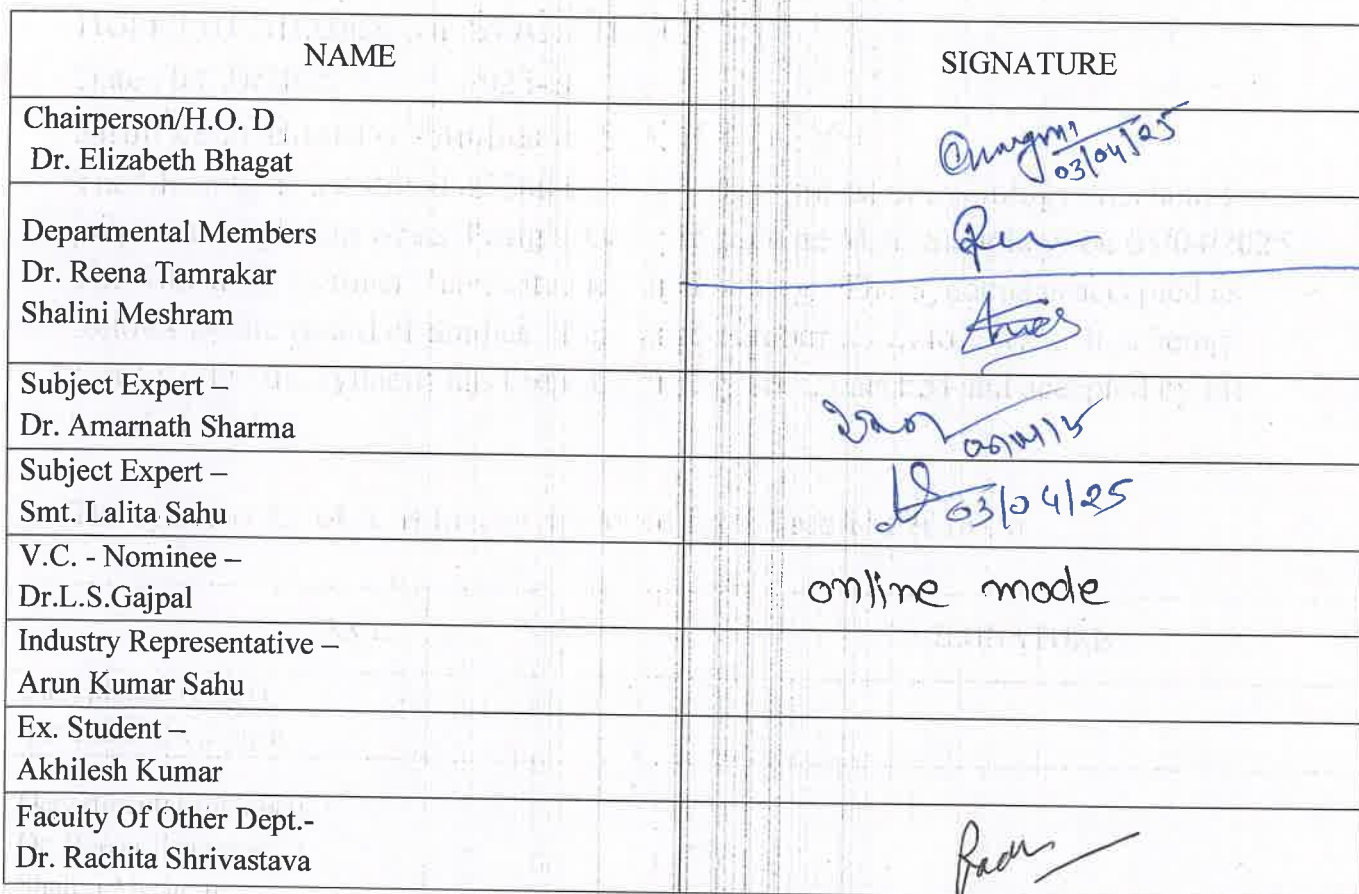 NAME
SIGNATURE
Chairperson/H.O. D
Dr. Elizabeth Bhagat
03/04/25
Departmental Members
Dr. Reena Tamrakar
Shalini Meshram
Subject Expert –
Dr. Amarnath Sharma
Subject Expert –
Smt. Lalita Sahu
03/04/25
V.C. - Nominee –
Dr.L.S.Gajpal
online mode
Industry Representative –
Arun Kumar Sahu
Ex. Student –
Akhilesh Kumar
Faculty Of Other Dept.-
Dr. Rachita Shrivastava